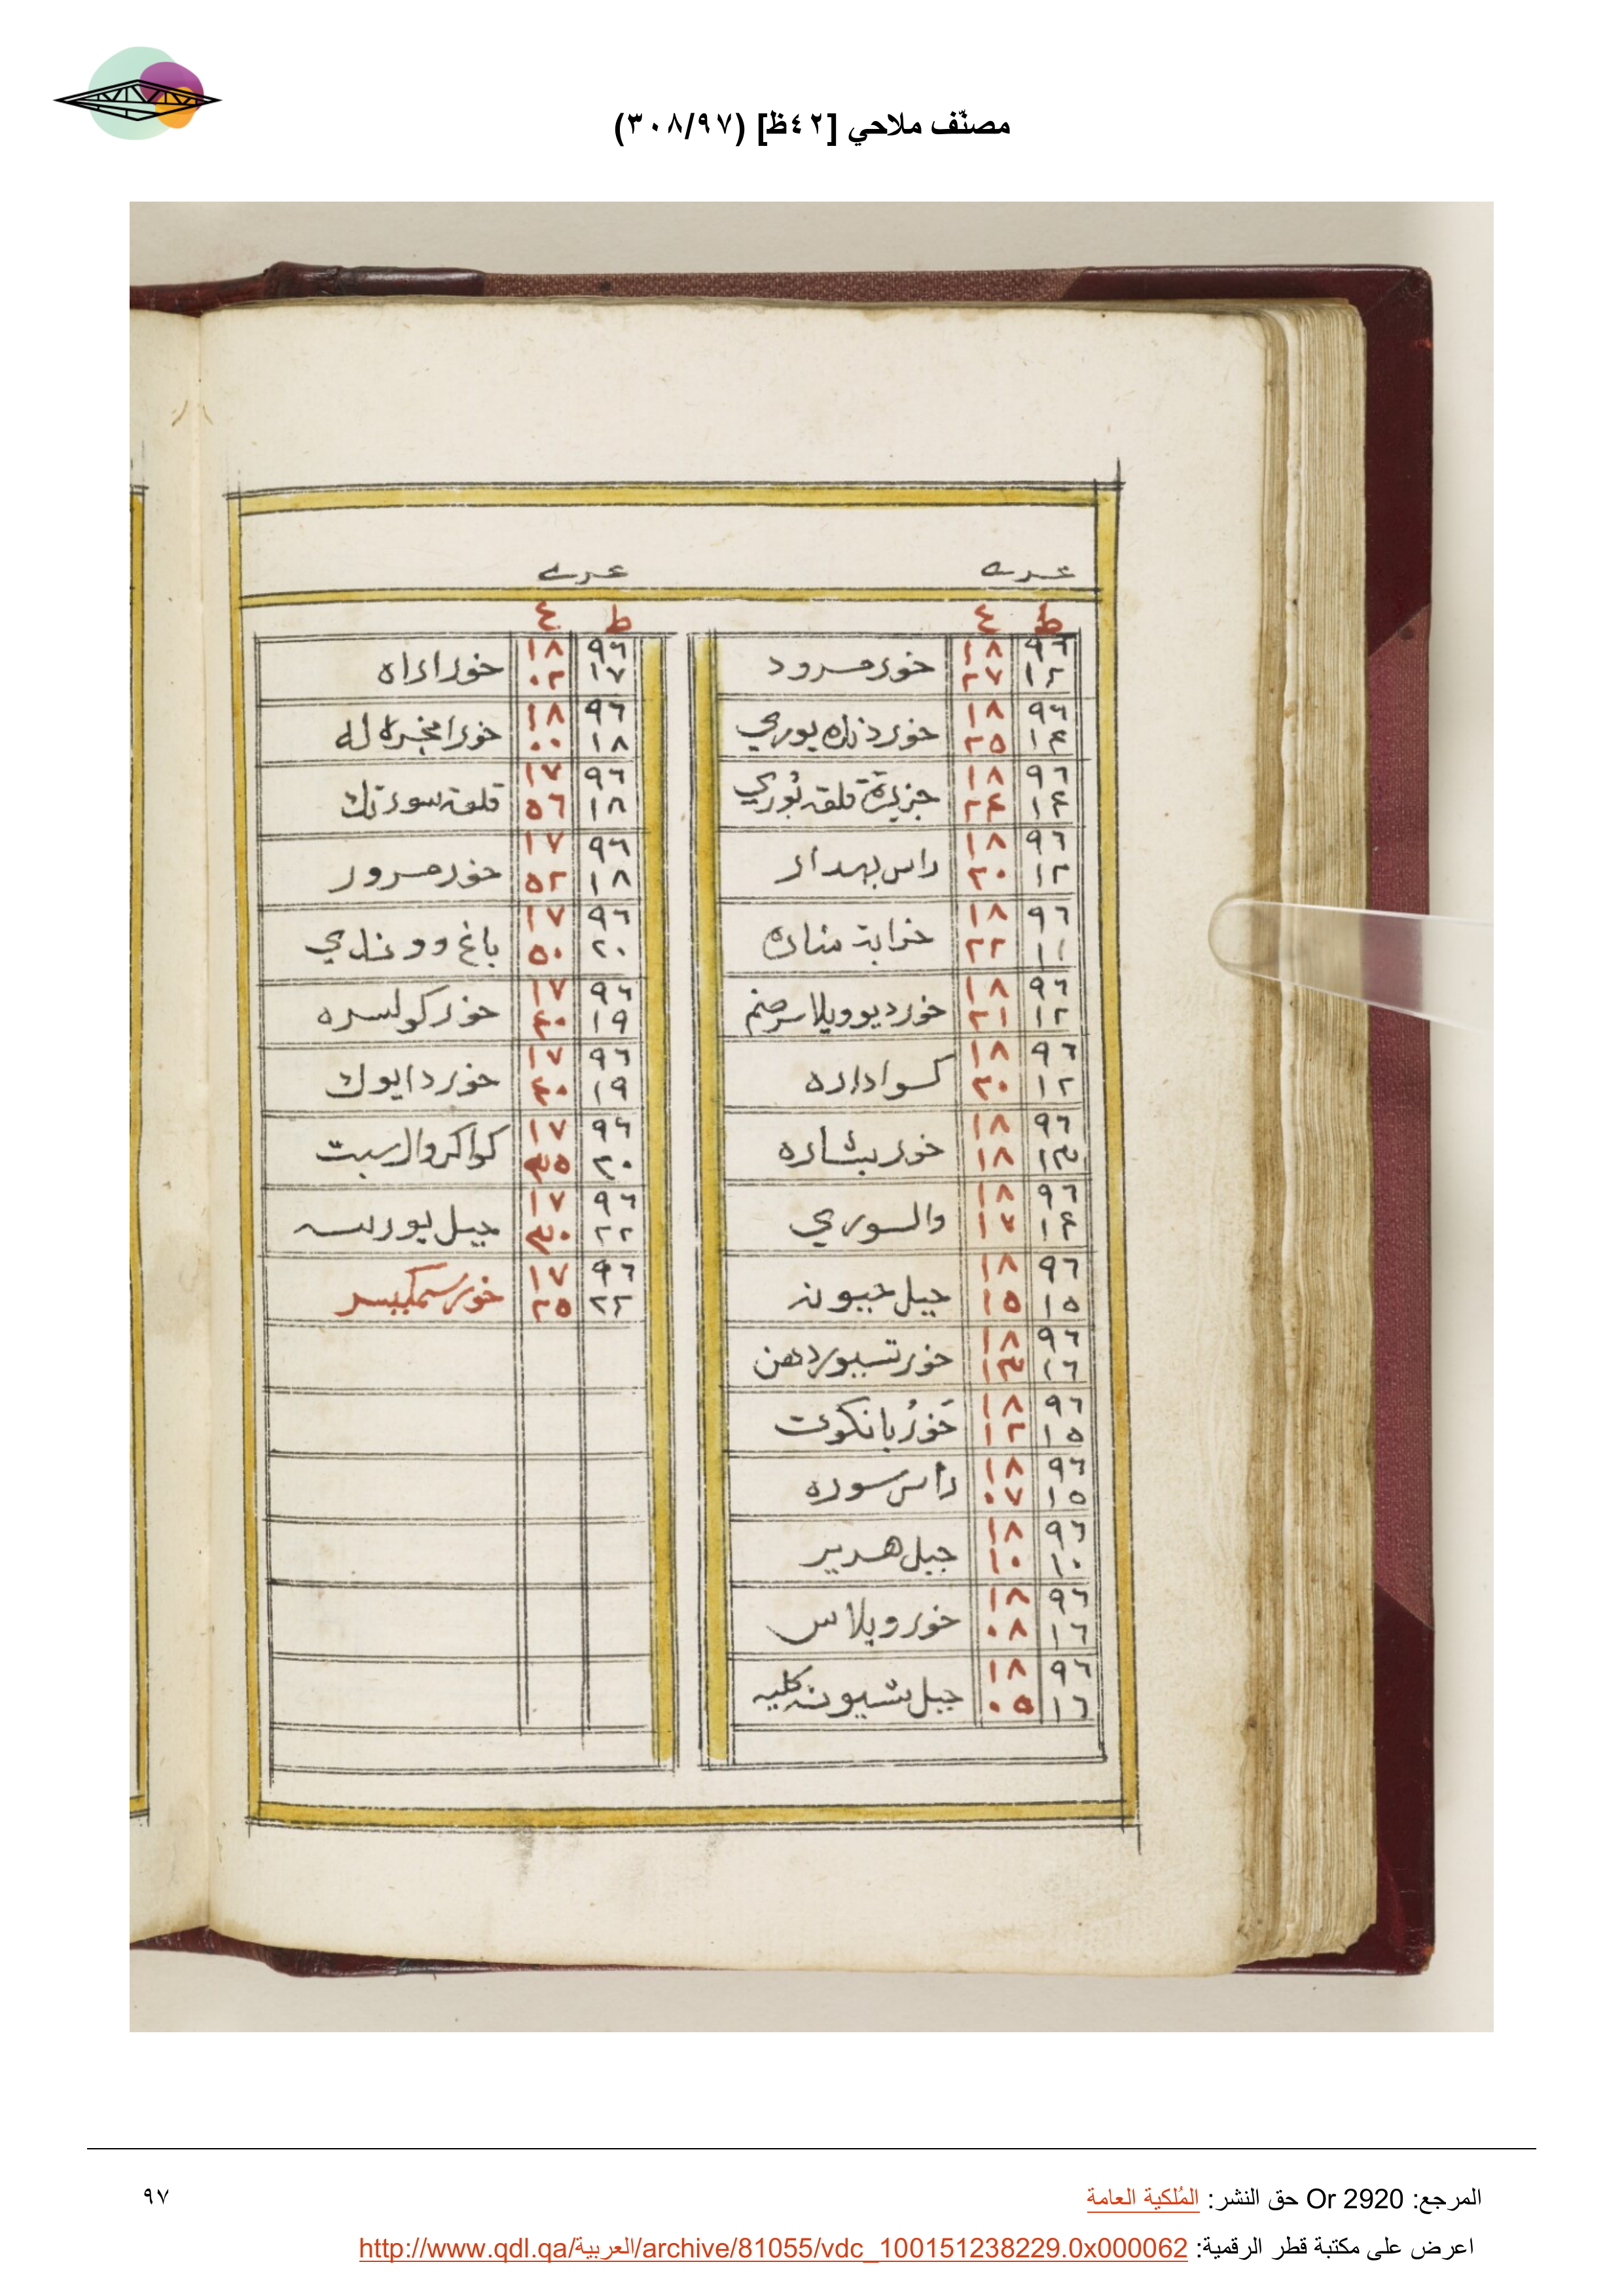 مصنّف ملاحي [٤٢ظ] (٣٠٨/٩٧)
ط ع
٩٦ ١٨
١٢ ٢٧ خور مرود
٩٦ ١٨
١٤ ٢٥ خور دنده بوري
٩٦ ١٨
١٤ ٢٤ جزيرة قلقه بُوري
٩٦ ١٨
١٢ ٢٠ راس بهدار
٩٦ ١٨
١١ ٢٢ خرابة مناره
٩٦ ١٨
١٢ ٢١ خور ديو ويلاسر صنم
٩٦ ١٨
١٢ ٢٠ كسواداره
٩٦ ١٨
١٣ ١٨ خور بشاره
٩٦ ١٨
١٤ ١٧ والسوري
٩٦ ١٨
١٥ ١٥ جبل جيونه
٩٦ ١٨
١٦ ١٣ خور تسيوردهن
٩٦ ١٨
١٥ ١٢ خَورُ بانكوت
٩٦ ١٨
١٥ ٠٧ راس سوره
٩٦ ١٨
١٠ ١٠ جبل هرير
٩٦ ١٨
١٦ ٠٨ خور ويلاس
٩٦ ١٨
١٦ ٠٥ جبل شيونه كليه
ط ع
٩٦ ١٨
١٧ ٠٢ خور اداه
٩٦ ١٨
١٨ ٠٠ خور انجره له
٩٦ ١٧
١٨ ٥٦ قلعة سورتك
٩٦ ١٧
١٨ ٥٢ خور مرور
٩٦ ١٧
٢٠ ٥٠ باغ وو ندي
٩٦ ١٧
١٩ ٤٠ خور كولسره
٩٦ ١٧
١٩ ٤٠ خور دايوك
٩٦ ١٧
٢٠ ٣٥ كواكروال سبت
٩٦ ١٧
٢٢ ٣٠ جبل بورسه
٩٦ ١٧
٢٢ ٢٥ خور سمكيسر
المرجع: Or 2920 حق النشر: المُلكية العامة
٩٧
اعرض على مكتبة قطر الرقمية: http://www.qdl.qa/العربية/archive/81055/vdc_100151238229.0x000062